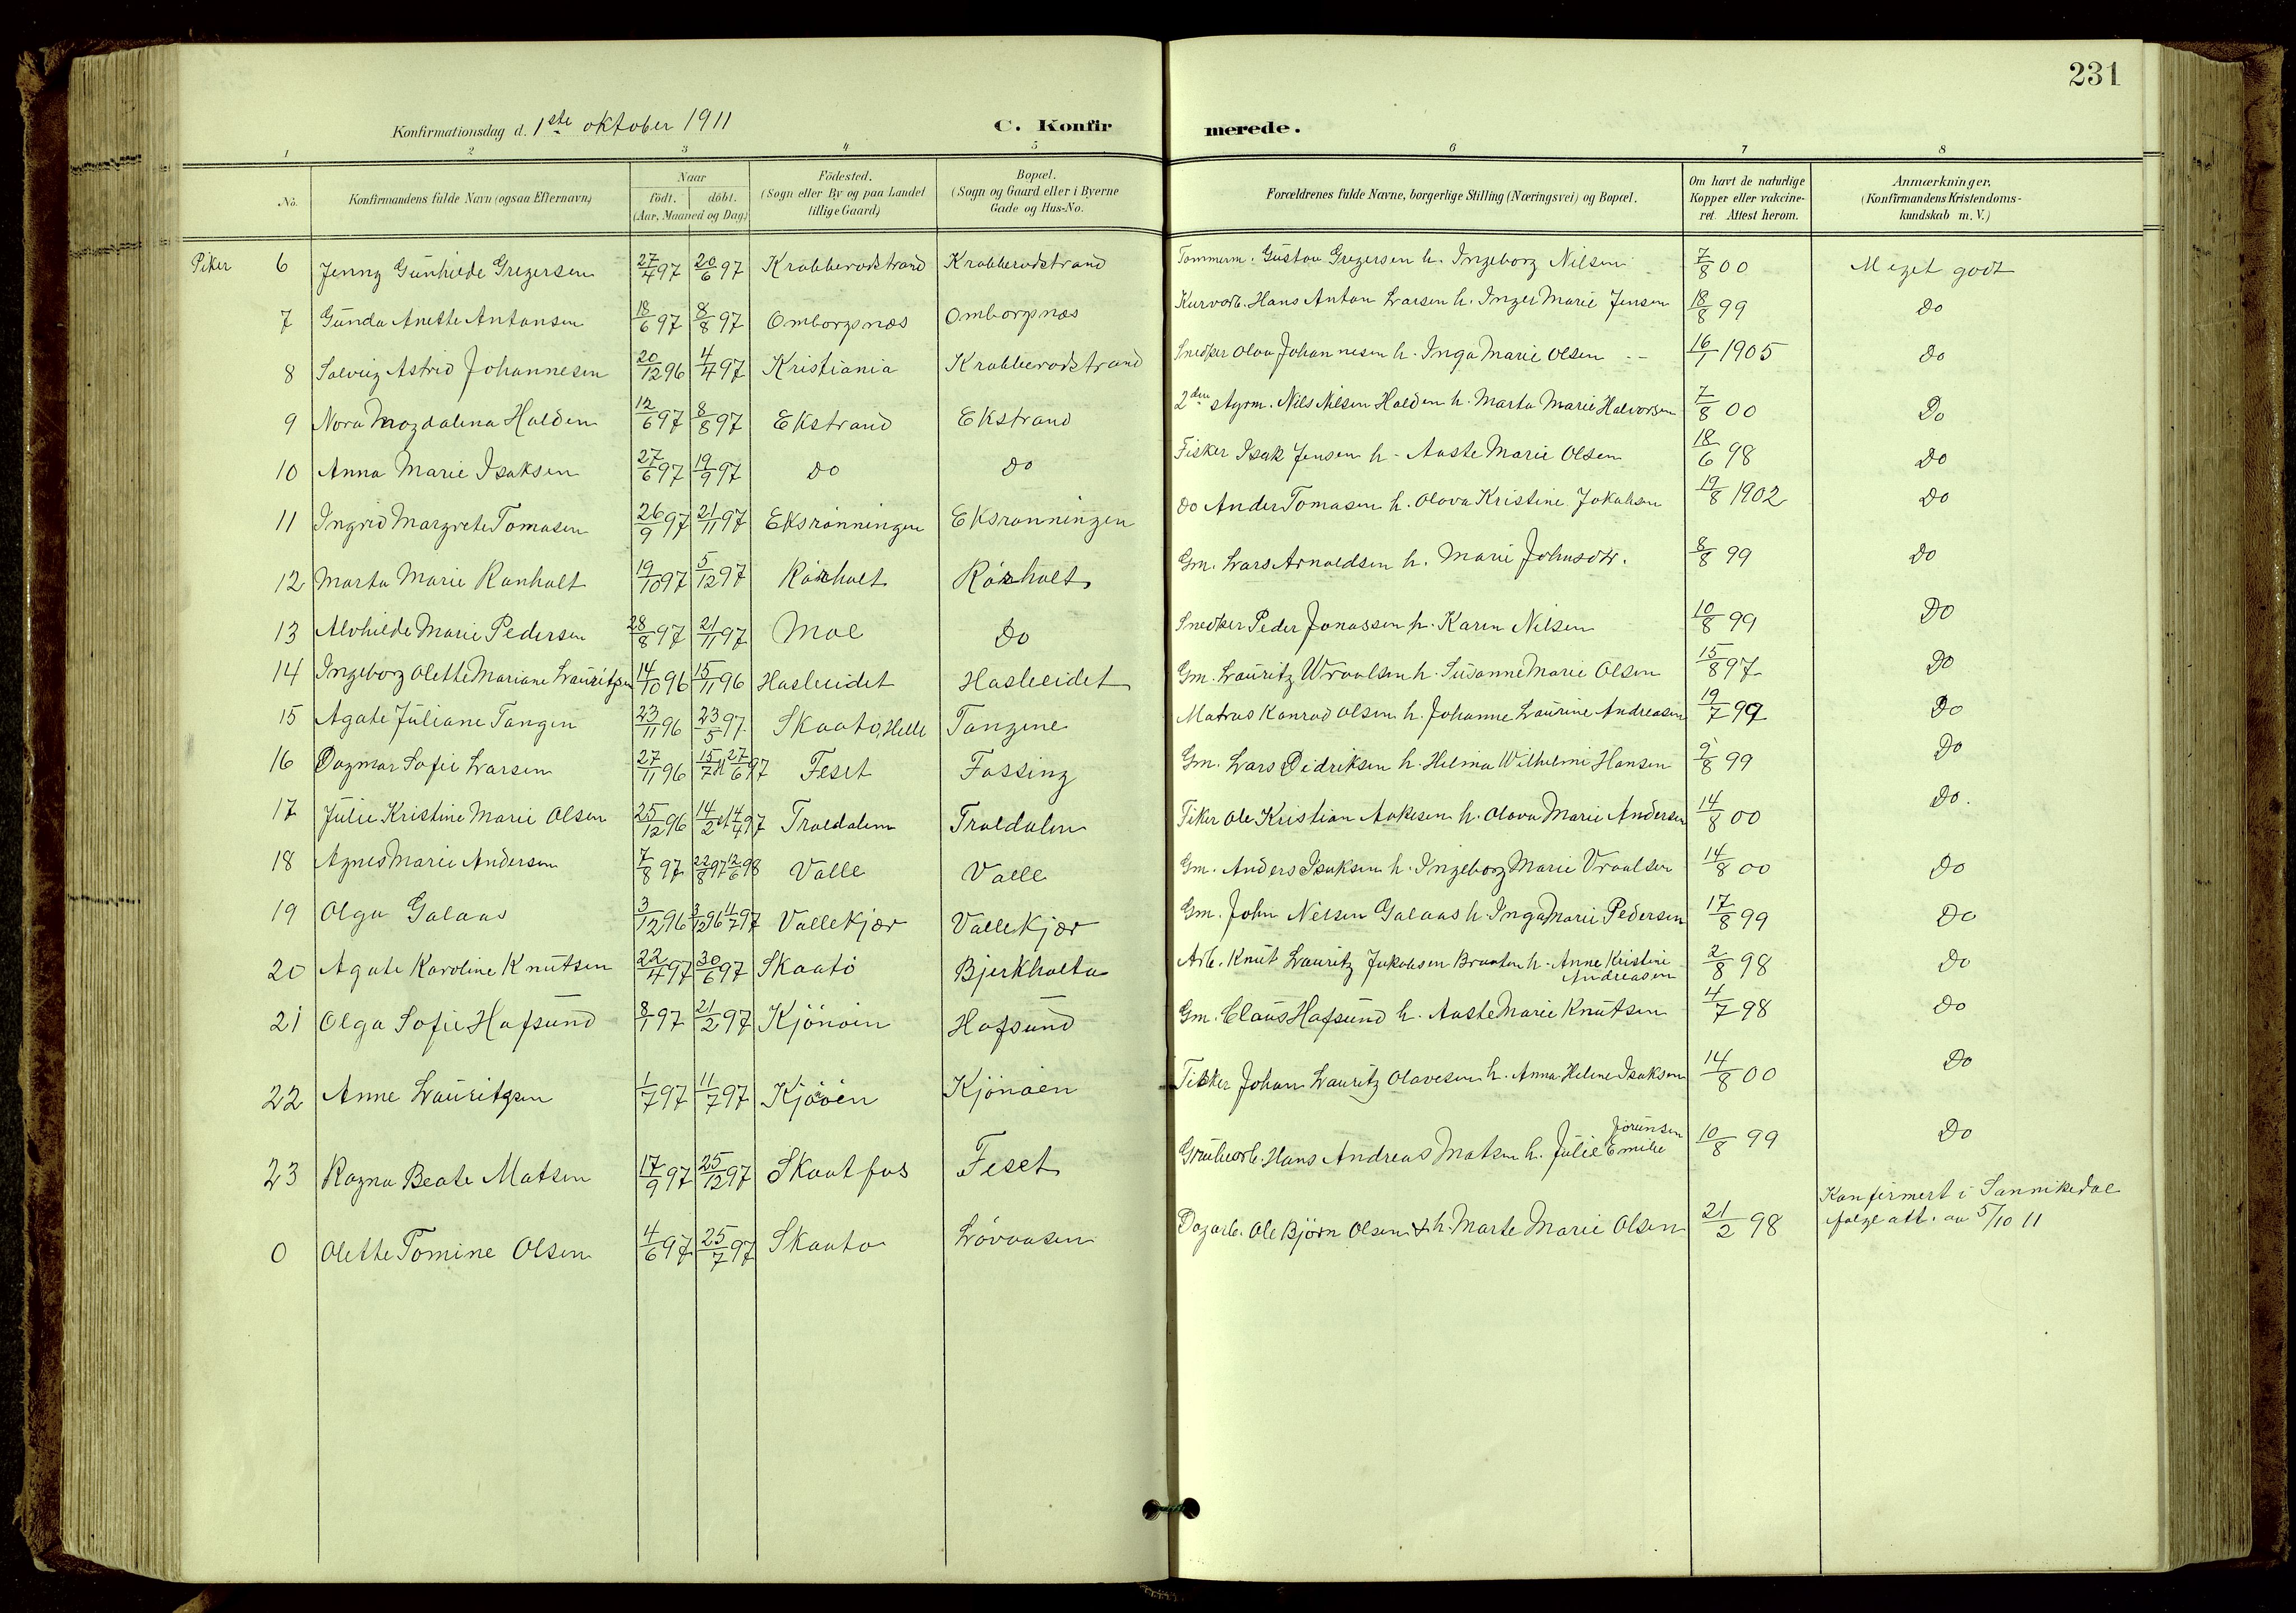 231
Konfirmationsdag d. 1ste oktober 1911 C. Konfirmerede.
1 2 3 4 5 6 7 8
No. Konfirmandens fulde Navn (ogsaa Efternavn) Naar födt. döbt. (Aar, Maaned og Dag) Födested. (Sogn eller By og paa Landet tillige Gaard) Bopæl. (Sogn og Gaard eller i Byerne Gade og Hus-No. Forældrenes fulde Navne, borgerlige Stilling (Næringsvei) og Bopæl. Om havt de naturlige Kopper eller vakcineret. Attest herom. Anmærkninger. (Konfirmandens Kristendomskundskab m. V.)
Piker 6 Jenny Gunhilde Gregersen 27/4 97 20/6 97 Krabberødstrand Krabberødstrand Tømmerm. Gustav Gregersen h. Ingeborg Nilsen 7/8 00 Meget godt
7 Gunda Anette Antonsen 18/6 97 8/8 97 Omborgsnæs Omborgsnæs Kurvarb. Hans Anton Larsen h. Inger Marie Jensen 18/8 99 Do
8 Solveig Astrid Johannesen 20/12 96 4/4 97 Kristiania Krabberødstrand Snedker Olav Johannesen h. Inga Marie Olsen 16/1 1905 Do
9 Nora Magdalena Halden 12/6 97 8/8 97 Ekstrand Ekstrand 2den styrm. Nils Nilsen Halden h. Marta Marie Halvorsen 7/8 00 Do
10 Anna Marie Isaksen 27/6 97 19/9 97 Do Do Fisker Isak Jensen h. Aaste Marie Olsen 18/6 98 Do
11 Ingrid Margrete Tomasen 26/9 97 21/11 97 Eksrønningen Eksrønningen Do Ander Tomasen h. Olava Kristine Jakobsen 19/8 1902 Do
12 Marta Marie Rønholt 19/10 97 5/12 97 Rørholt Rørholt Gm. Lars Arnoldsen h. Marie Johnsdtr. 8/8 99 Do
13 Alvhilde Marie Pedersen 28/8 97 21/11 97 Moe Do Snedker Peder Jonassen h. Karen Nilsen 10/8 99 Do
14 Ingeborg Olette Mariane Lauritzsen 14/10 96 15/11 96 Hasleeidet Hasleeidet Gm. Lauritz Wraalsen h. Susanne Marie Olsen 15/8 97 Do
15 Agate Juliane Tangen 23/11 96 23/5 97 Skaatø, Helle Tangene Matros Konrad Olsen h. Johanne Laurine Andreasen 19/7 99 Do
16 Dagmar Sofie Larsen 27/11 96 15/7 27/6 97 Feset Fossing Gm. Lars Didriksen h. Helma Wilhelmi Hansen 9/8 99 Do
17 Julie Kristine Marie Olsen 25/12 96 14/2 et 4/4 97 Troldalen Troldalen Fiker Ole Kristian Aakesen h. Olava Marie Andersen 14/8 00 Do.
18 Agnes Marie Andersen 7/8 97 22/8 97 12/6 98 Valle Valle Gm. Anders Isaksen h. Ingeborg Marie Vraalsen 14/8 00 Do
19 Olga Galaas 3/12 96 3/12 96 11/7 97 Vallekjær Vallekjær Gm. John Nelsen Galaas h. Inga Marie Pedersen 17/8 99 Do
20 Agate Karoline Knutsen 22/4 97 30/6 97 Skaatö Bjerkholta Arb. Knut Lauritz Jakobsen Braaten h. Anne Kristine Andreasen 2/8 98 Do
21 Olga Sofie Hafsund 8/1 97 21/2 97 Kjönöin Hafsund Gm. Claus Hafsund h. Aaste Marie Knutsen 4/7 98 Do
22 Anne Lauritzsen 1/7 97 11/7 97 Kjöien Kjönöen Fisker Johan Lauritz Olavesen h. Anna Helene Isaksen 14/8 00 Do
23 Ragna Beate Matsen 17/9 97 25/12 97 Skaatfos Feset Grubearb. Hans Andreas Matsen h. Julie Emilie Jörunsen 10/8 99 Do
0 Olette Tomine Olsen 4/6 97 25/7 97 Skaatø Lövaasen Dagarb. Ole Björn Olsen & h. Marte Marie Olsen 21/2 98 Konfirmert i Sannikedal ifølge att. av 5/10 11